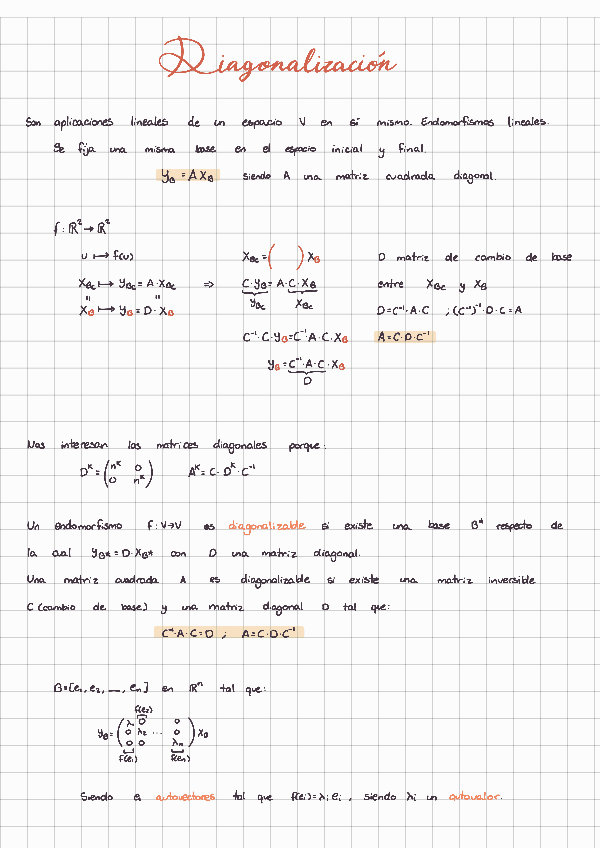 Diagonalización
Son aplicaciones lineales de un espacio V en sí mismo. Endomorfismos lineales.
Se fija una misma base en el espacio inicial y final.
y_B = A X_B siendo A una matriz cuadrada diagonal.
f: ℝ² → ℝ²
u ↦ f(u) X_Bc = ( ) X_B D matriz de cambio de base
X_Bc ↦ y_Bc = A · X_Bc ⇒ C · y_B = A · C · X_B entre X_Bc y X_B
" " y_Bc X_Bc
X_B ↦ y_B = D · X_B D = C⁻¹ · A · C ; (C⁻¹)⁻¹ · D · C = A
C⁻¹ · C · y_B = C⁻¹ · A · C · X_B A = C · D · C⁻¹
y_B = C⁻¹ · A · C · X_B
D
Nos interesan las matrices diagonales porque:
D^K = ( n^K 0
0 n^K ) A^K = C · D^K · C⁻¹
Un endomorfismo f: V → V es diagonalizable si existe una base B* respecto de
la cual y_B* = D · X_B* con D una matriz diagonal.
Una matriz cuadrada A es diagonalizable si existe una matriz inversible
C (cambio de base) y una matriz diagonal D tal que:
C⁻¹ · A · C = D ; A = C · D · C⁻¹
B = [e₁, e₂, ..., eₙ] en ℝⁿ tal que:
f(e₂)
λ 0 0
y_B = ( 0 λ₂ ... 0 ) X_B
0 0 λₙ
f(e₁) f(eₙ)
Siendo eᵢ autovectores tal que f(eᵢ) = λᵢ eᵢ , siendo λᵢ un autovalor.